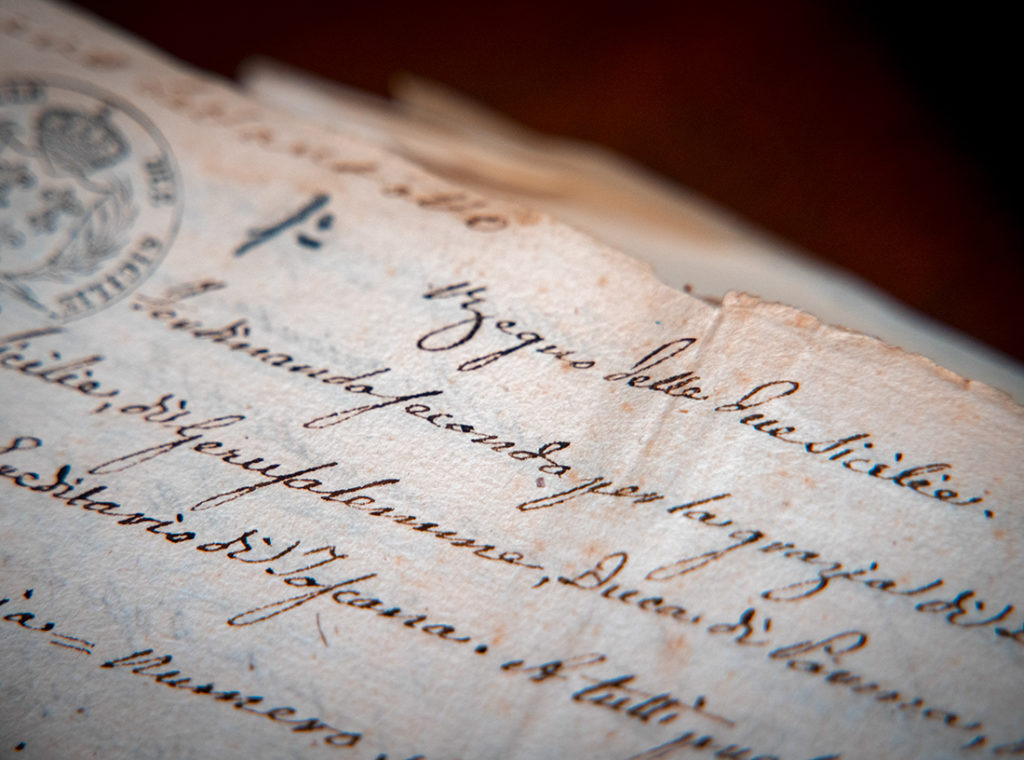 DELLE SICILIE
1:
Regno delle due Sicilie.
Ferdinando secondo per la grazia di
Sicilie, di Gerusalemme, Duca di Parma,
Ereditario di Toscana. A tutti
Numero